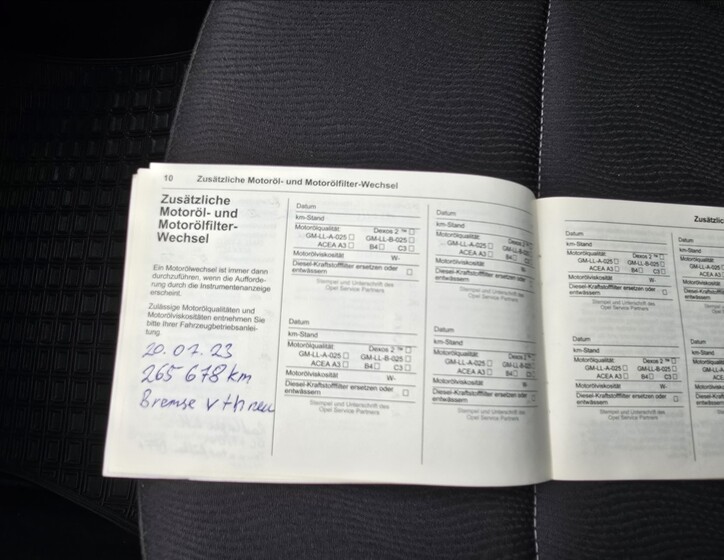 10 Zusätzliche Motoröl- und Motorölfilter-Wechsel
Zusätzliche
Motoröl- und
Motorölfilter-
Wechsel
Ein Motorölwechsel ist immer dann
durchzuführen, wenn die Aufforde-
rung durch die Instrumentenanzeige
erscheint.
Zulässige Motorölqualitäten und
Motorölviskositäten entnehmen Sie
bitte Ihrer Fahrzeugbetriebsanlei-
tung.
20.07.23
265 678 km
Bremse v+h neu
Datum
km-Stand
Motorölqualität: Dexos 2 ™
GM-LL-A-025 GM-LL-B-025
ACEA A3 B4 C3
Motorölviskosität W-
Diesel-Kraftstofffilter ersetzen oder
entwässern
Stempel und Unterschrift des
Opel Service Partners
Datum
km-Stand
Motorölqualität: Dexos 2 ™
GM-LL-A-025 GM-LL-B-025
ACEA A3 B4 C3
Motorölviskosität W-
Diesel-Kraftstofffilter ersetzen oder
entwässern
Stempel und Unterschrift des
Opel Service Partners
Datum
km-Stand
Motorölqualität: Dexos 2
GM-LL-A-025 GM-LL-B-025
ACEA A3 B4 C3
Motorölviskosität W-
Diesel-Kraftstofffilter ersetzen oder
entwässern
Stempel und Unterschrift des
Opel Service Partners
Datum
km-Stand
Motorölqualität: Dexos 2
GM-LL-A-025 GM-LL-B-025
ACEA A3 B4 C3
Motorölviskosität W-
Diesel-Kraftstofffilter ersetzen oder
entwässern
Stempel und Unterschrift des
Opel Service Partners
Datum
km-Stand
Motorölqualität: Dexos 2 ™
GM-LL-A-025 GM-LL-B-025
ACEA A3 B4 C3
Motorölviskosität W-
Diesel-Kraftstofffilter ersetzen oder
entwässern
Stempel und Unterschrift des
Opel Service Partners
Datum
km-Stand
Motorölqualität: Dexos 2 ™
GM-LL-A-025 GM-LL-B-025
ACEA A3 B4 C3
Motorölviskosität W-
Diesel-Kraftstofffilter ersetzen oder
entwässern
Stempel und Unterschrift des
Opel Service Partners
Datum
km-Stand